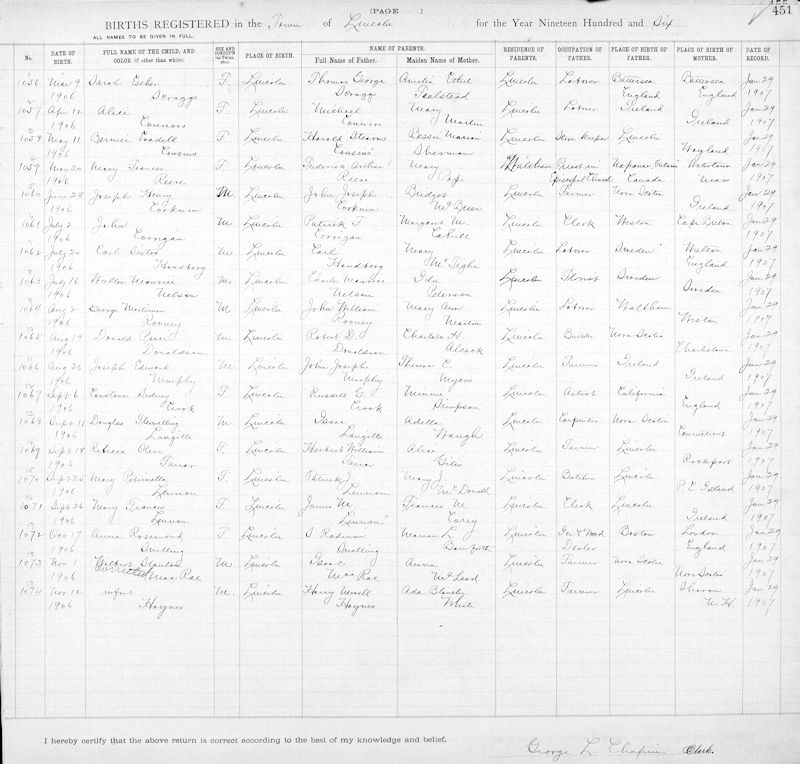 (PAGE )
451
BIRTHS REGISTERED in the Town of Lincoln for the Year Nineteen Hundred and Six
ALL NAMES TO BE GIVEN IN FULL.
No. DATE OF BIRTH. FULL NAME OF THE CHILD, AND COLOR (if other than white). SEX AND CONDIT'N (as Twins, etc.) PLACE OF BIRTH. NAME OF PARENTS. Full Name of Father. Maiden Name of Mother. RESIDENCE OF PARENTS. OCCUPATION OF FATHER. PLACE OF BIRTH OF FATHER. PLACE OF BIRTH OF MOTHER. DATE OF RECORD.
1056 Mar 9 Sarah Esther F. Lincoln Thomas George Amelia Ethel Lincoln Laborer Battersea Battersea Jan 29
1906 Scraggs Scraggs England England 1907
1057 Apr 12 Alice F. Lincoln Michael Mary Lincoln Laborer Ireland Jan 29
1906 Connors Connors Martin Ireland 1907
1058 May 11 Bernice F Lincoln Harold Stearns Bessie Lincoln Store keeper Lincoln Jan 29
1906 Cousins Cousins Sherman Wayland 1907
1059 May 20 Mary Frances F Lincoln Frederick Arthur Mary Waltham Priest in Napanee Ontario Watertown Jan 29
1906 Reese Reese Pope Episcopal Church Canada Mass 1907
1060 June 28 Joseph Henry M Lincoln John Joseph Bridget Lincoln Farmer Nova Scotia Jan 29
1906 Corkum Corkum Ireland 1907
1061 July 2 John M Lincoln Patrick F Margaret M. Lincoln Clerk Weston Cape Breton Jan 29
1906 Corrigan Corrigan Cahill 1907
1062 July 20 Carl M Lincoln Carl Mary Lincoln Laborer Sweden Jan 29
1906 Handberg Handberg McTighe England 1907
1063 July 16 Walter Maurice M Lincoln Charles Maurice Ida Lincoln Florist Sweden Jan 29
1906 Nelson Nelson Peterson Sweden 1907
1064 Aug 2 George Mortimer M Lincoln John William Mary Ann Lincoln Laborer Waltham Jan 29
1906 Rooney Rooney Martin Weston 1907
1065 Aug 19 Donald M Lincoln Robert D. Charlotte H. Lincoln Builder Nova Scotia Jan 29
1906 Donaldson Donaldson Alcock Charlestown 1907
1066 Aug 26 Joseph Edward M Lincoln John Joseph Theresa E Lincoln Farmer Ireland Jan 29
1906 Murphy Murphy Myers Ireland 1907
1067 Sept 6 Constance Sidney F Lincoln Russell G. Minnie Lincoln Artist California Jan 29
1906 Crook Crook Simpson England 1907
1068 Sept 11 Douglas M Lincoln Isaac Adella Lincoln Carpenter Nova Scotia Jan 29
1906 Langille Langille Waugh Connecticut 1907
1069 Sept 18 Rebecca F. Lincoln Herbert William Alice Lincoln Farmer Lincoln Jan 29
1906 Farrar Farrar Giles Rockport 1907
1070 Sept 25 Mary F. Lincoln Patrick J Mary J Lincoln Butcher Lincoln Jan 29
1906 Lennon Lennon McDonald P. E. Island 1907
1071 Sept 26 Mary Frances F Lincoln James M. Frances M Lincoln Clerk Lincoln Jan 29
1906 Lennon Lennon Carey Ireland 1907
1072 Oct 17 Anna Rosamond F Lincoln I. Rodman Marian L Lincoln Ice & Wood Boston London Jan 29
1906 Snelling Snelling Bamforth Dealer England 1907
1073 Nov 1 Wilbert Stanton M. Lincoln Isaac Anna Lincoln Farmer Nova Scotia Jan 29
1906 Corrected MacRae MacRae McLeod Nova Scotia 1907
1074 Nov 12 infant M. Lincoln Harry Newell Ada Blanche Lincoln Farmer Lincoln Sharon Jan 29
1906 Haynes Haynes White N. H. 1907
I hereby certify that the above return is correct according to the best of my knowledge and belief.
George L. Chapin Clerk.